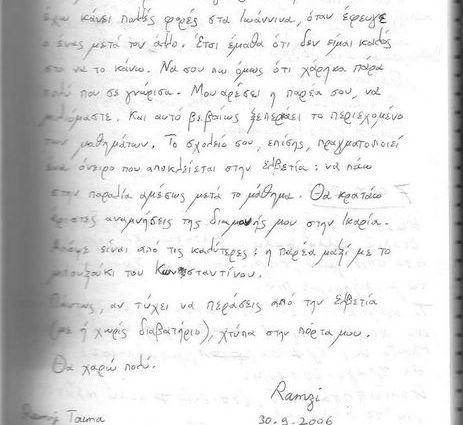 έχω κάνει πολλές φορές στα Ιωάννινα, όταν έφευγε
ο ένας μετά τον άλλο. Έτσι έμαθα ότι δεν είμαι καλός
στο να το κάνω. Να σου πω όμως ότι χάρηκα πάρα
πολύ που σε γνώρισα. Μου αρέσει η παρέα σου, να
μιλάμε. Και αυτό βεβαίως ξεπεράει το περιεχόμενο
των μαθημάτων. Το σχολείο σου, επίσης, πραγματοποιεί
ένα όνειρο που αποκλείεται στην Ελβετία: να πάω
στην παραλία αμέσως μετά το μάθημα. Θα κρατάω
άριστες αναμνήσεις της διαμονής μου στην Ικαρία.
είναι από τις καλύτερες: η παρέα μαζί με το
μπουζούκι του Κωνσταντίνου.
Πάντως, αν τύχει να περάσεις από την Ελβετία
(με ή χωρίς διαβατήριο), χτύπα στην πόρτα μου.
Θα χαρώ πολύ.
Ramzi
Ramzi Touma
30.9.2006